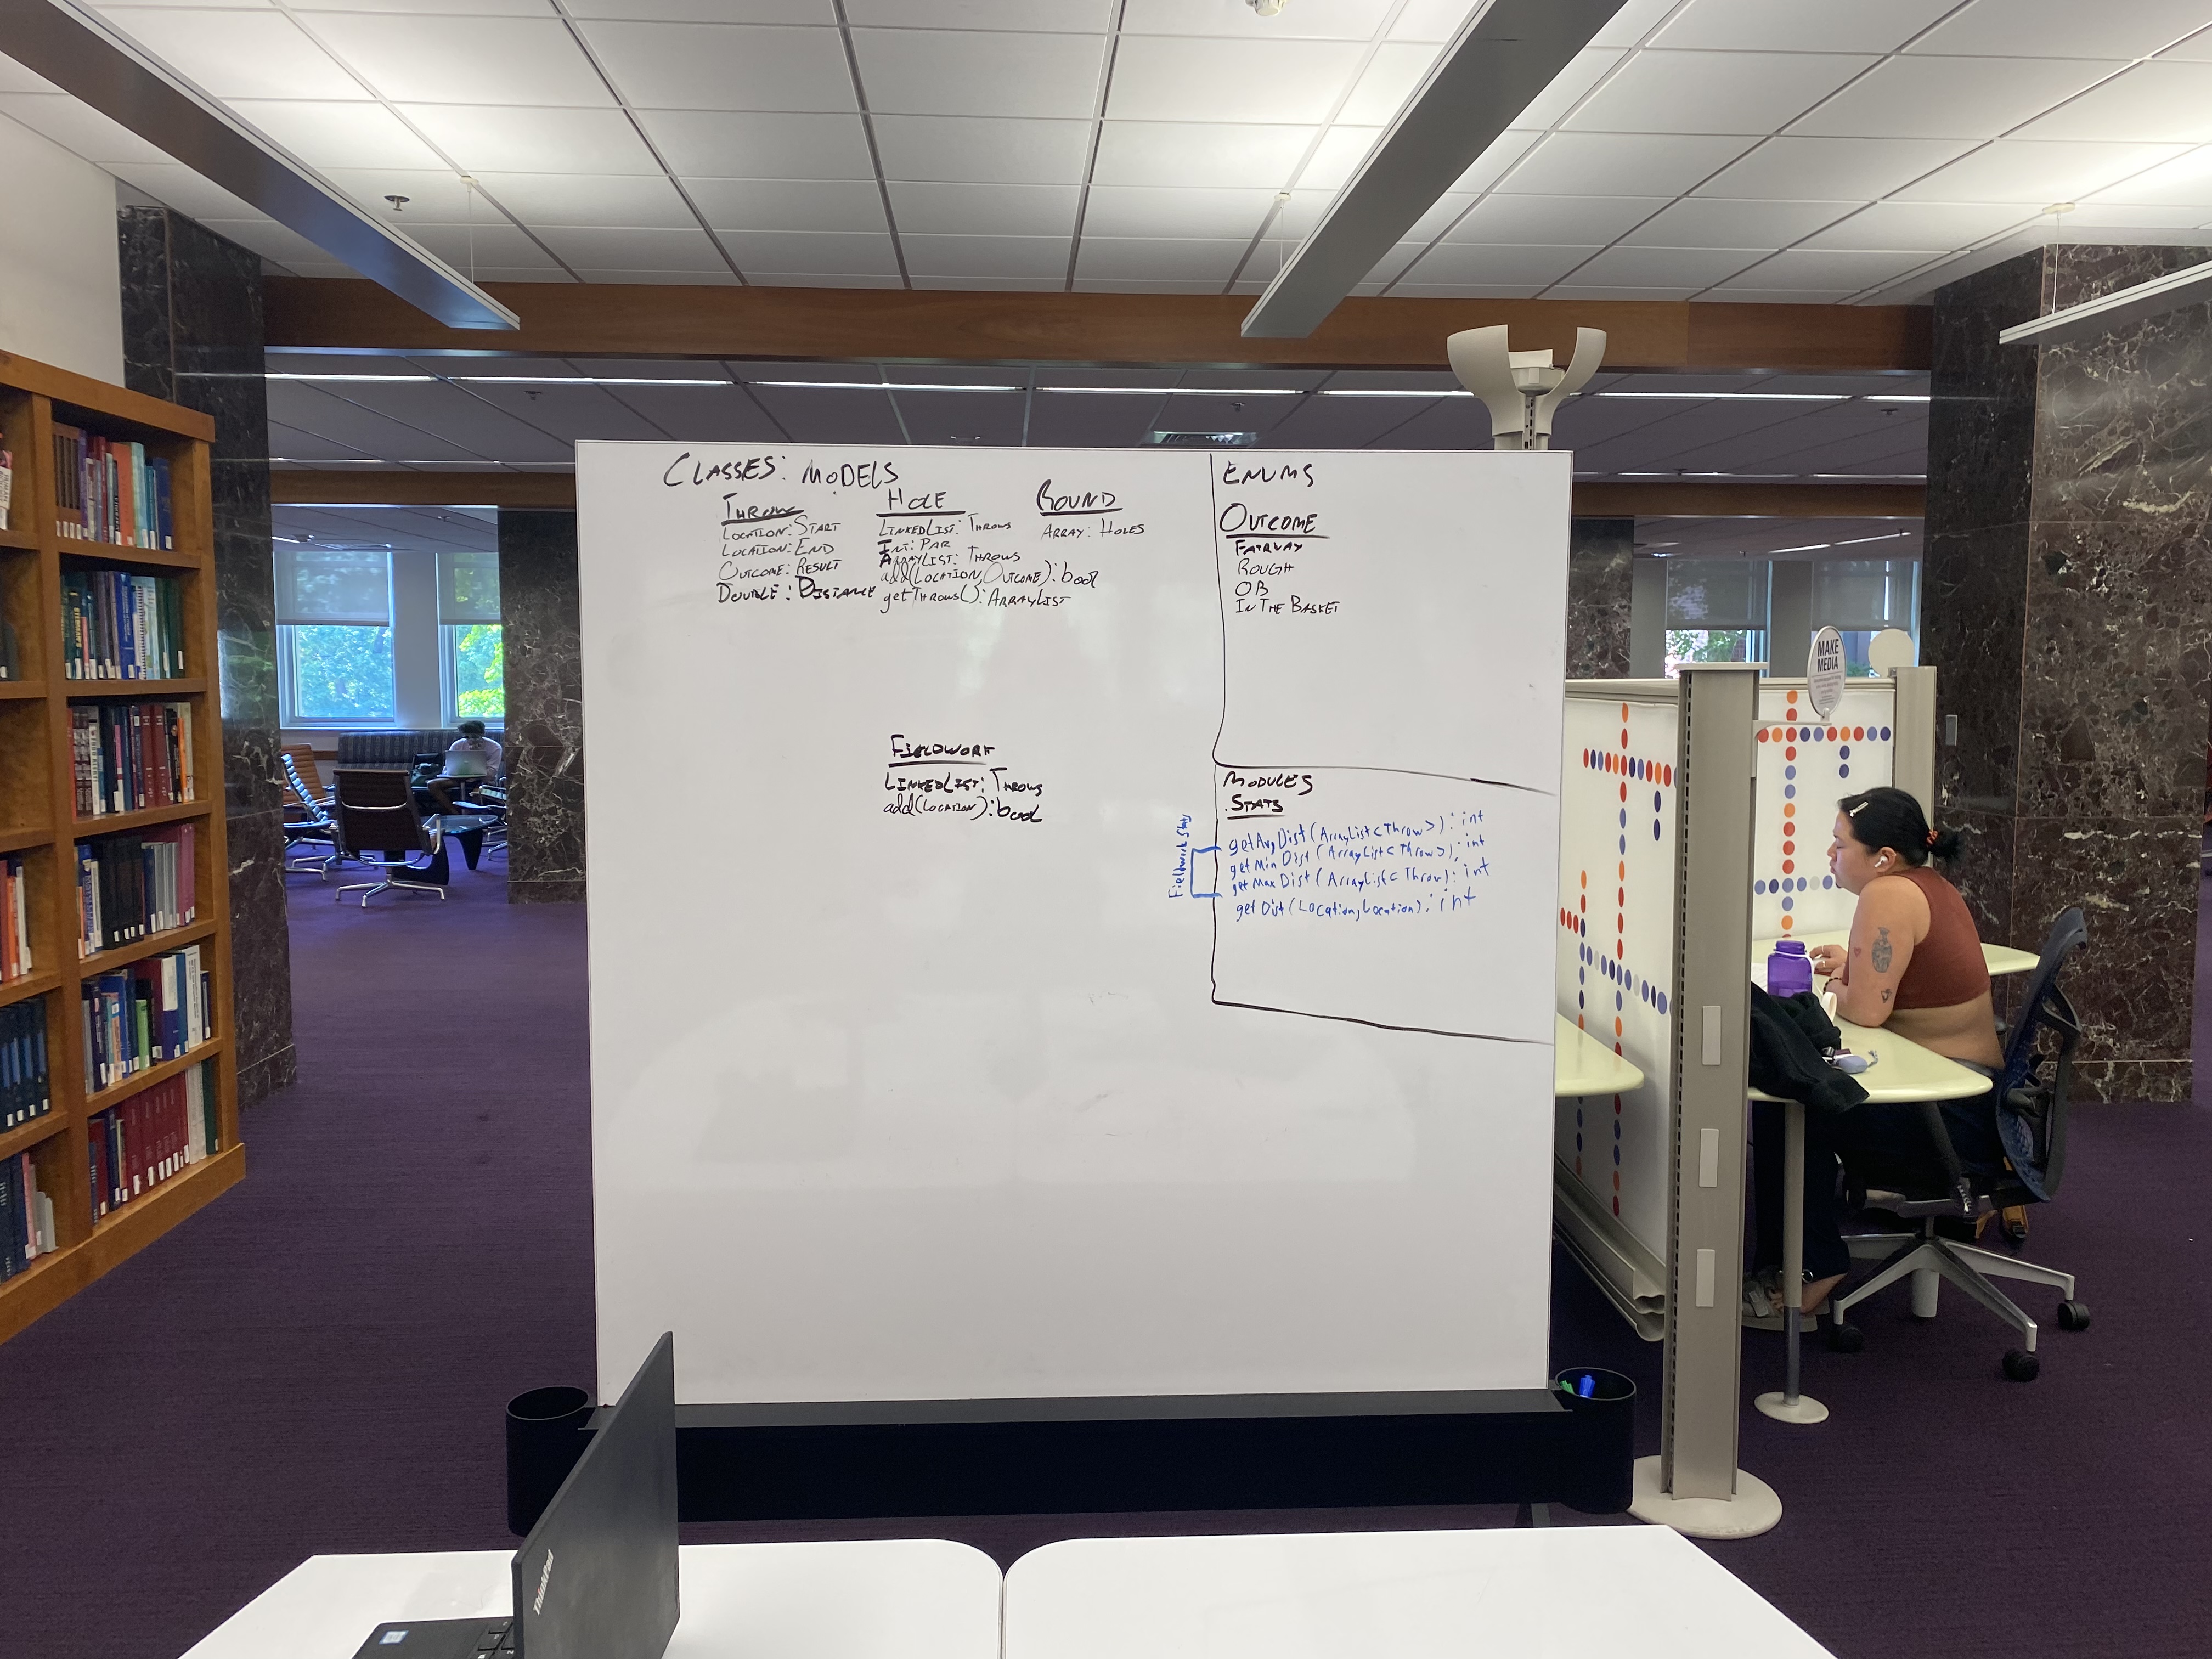 CLASSES: MODELS
THROW
LOCATION: START
LOCATION: END
OUTCOME: RESULT
DOUBLE: DISTANCE
HOLE
LINKEDLIST: THROWS
INT: PAR
ARRAYLIST: THROWS
add(LOCATION, OUTCOME): bool
getTHROWS(): ARRAYLIST
ROUND
ARRAY: HOLES
FIELDWORK
LINKEDLIST: THROWS
add(LOCATION): bool
ENUMS
OUTCOME
FAIRWAY
ROUGH
OB
IN THE BASKET
MODULES
STATS
Fieldwork Stats
getAvgDist(ArrayList<Throw>): int
getMinDist(ArrayList<Throw>): int
getMaxDist(ArrayList<Throw): int
getDist(Location, Location): int
MAKE
MEDIA
ThinkPad